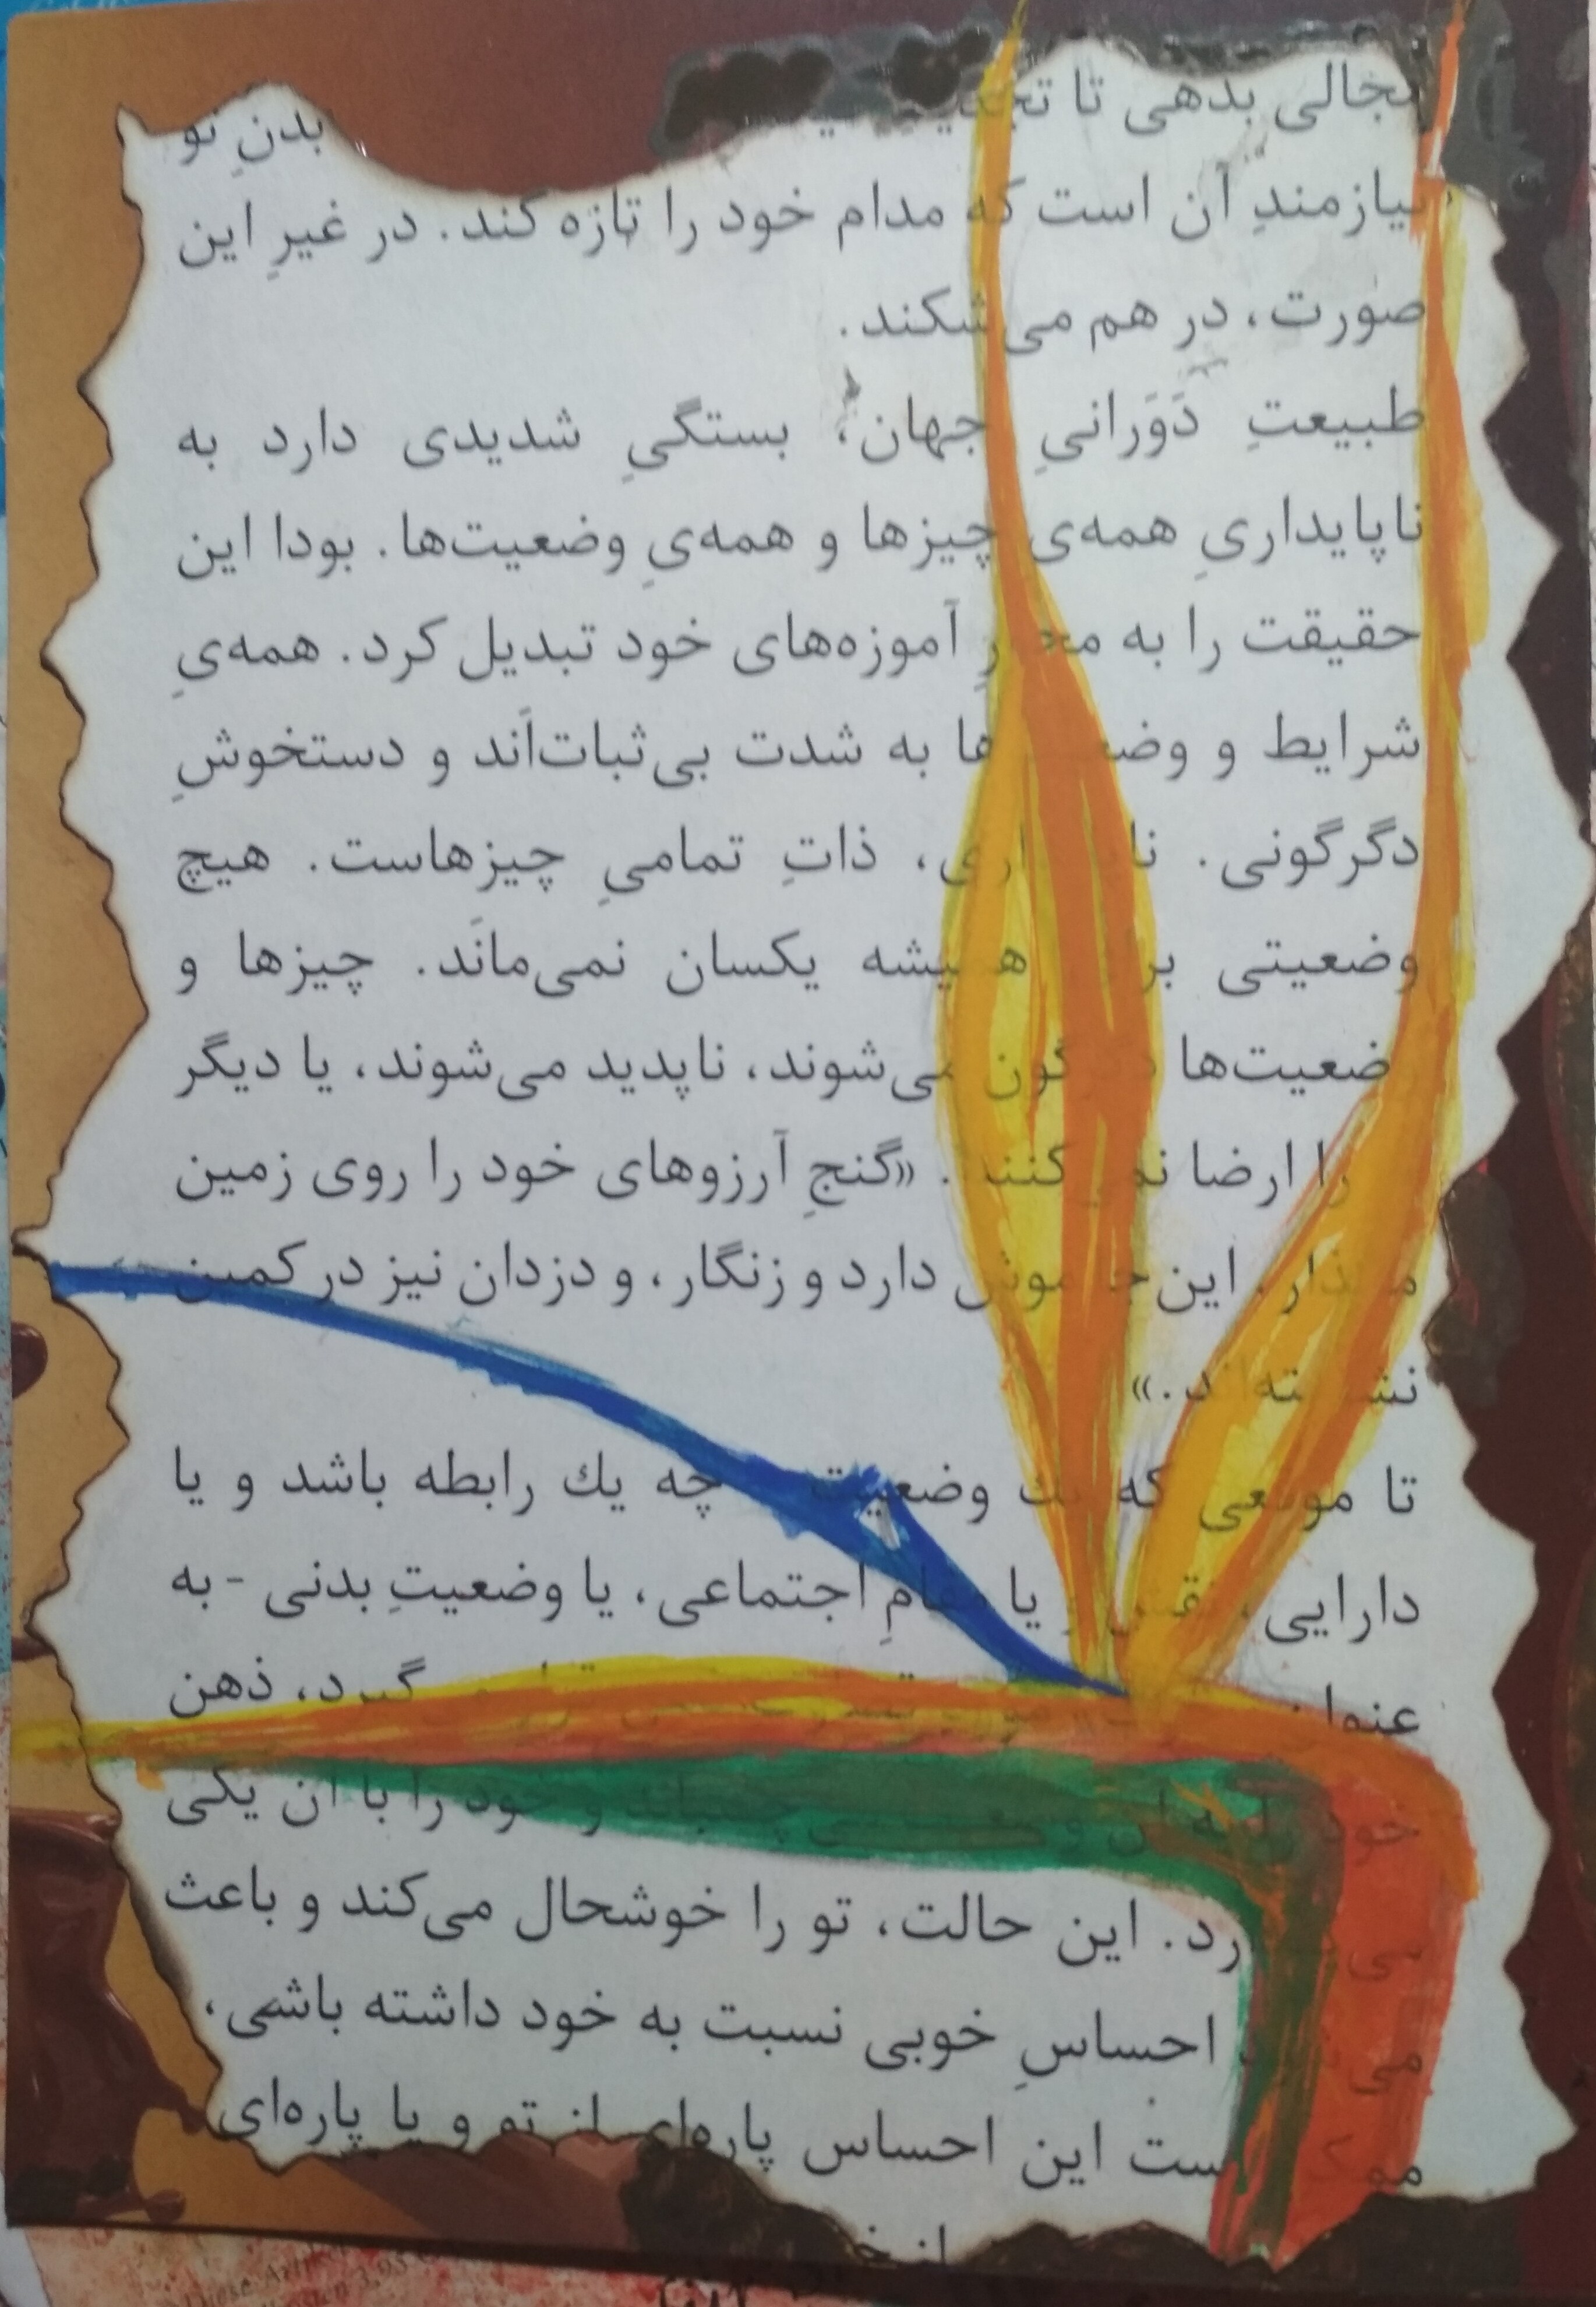 مجالی بدهی تا بدنِ تو
نیازمندِ آن است که مدام خود را تازه کند. در غیرِ این
صورت، در هم می‌شکند.
طبیعتِ دَوَرانیِ جهان، بستگیِ شدیدی دارد به
ناپایداریِ همه‌ی چیزها و همه‌یِ وضعیت‌ها. بودا این
حقیقت را به محورِ آموزه‌های خود تبدیل کرد. همه‌یِ
شرایط و وضعیت‌ها به شدت بی‌ثبات‌اَند و دستخوشِ
دگرگونی. ناپایداری، ذاتِ تمامیِ چیزهاست. هیچ
وضعیتی برای همیشه یکسان نمی‌ماند. چیزها و
ضعیت‌ها دگرگون می‌شوند، ناپدید می‌شوند، یا دیگر
را ارضا نمی‌کنند. «گنجِ آرزوهای خود را روی زمین
مگذار، این‌جا موش دارد و زنگار، و دزدان نیز در کمین
نشسته‌اند.»
تا موقعی که یك وضعیت چه یك رابطه باشد و یا
دارایی، نقش یا مقامِ اجتماعی، یا وضعیتِ بدنی - به
عنوان گیرد، ذهن
خود را به آن و خود را با آن یکی
رد. این حالت، تو را خوشحال می‌کند و باعث
احساسِ خوبی نسبت به خود داشته باشی،
ست این احساس پاره‌ای از تو و یا پاره‌ای